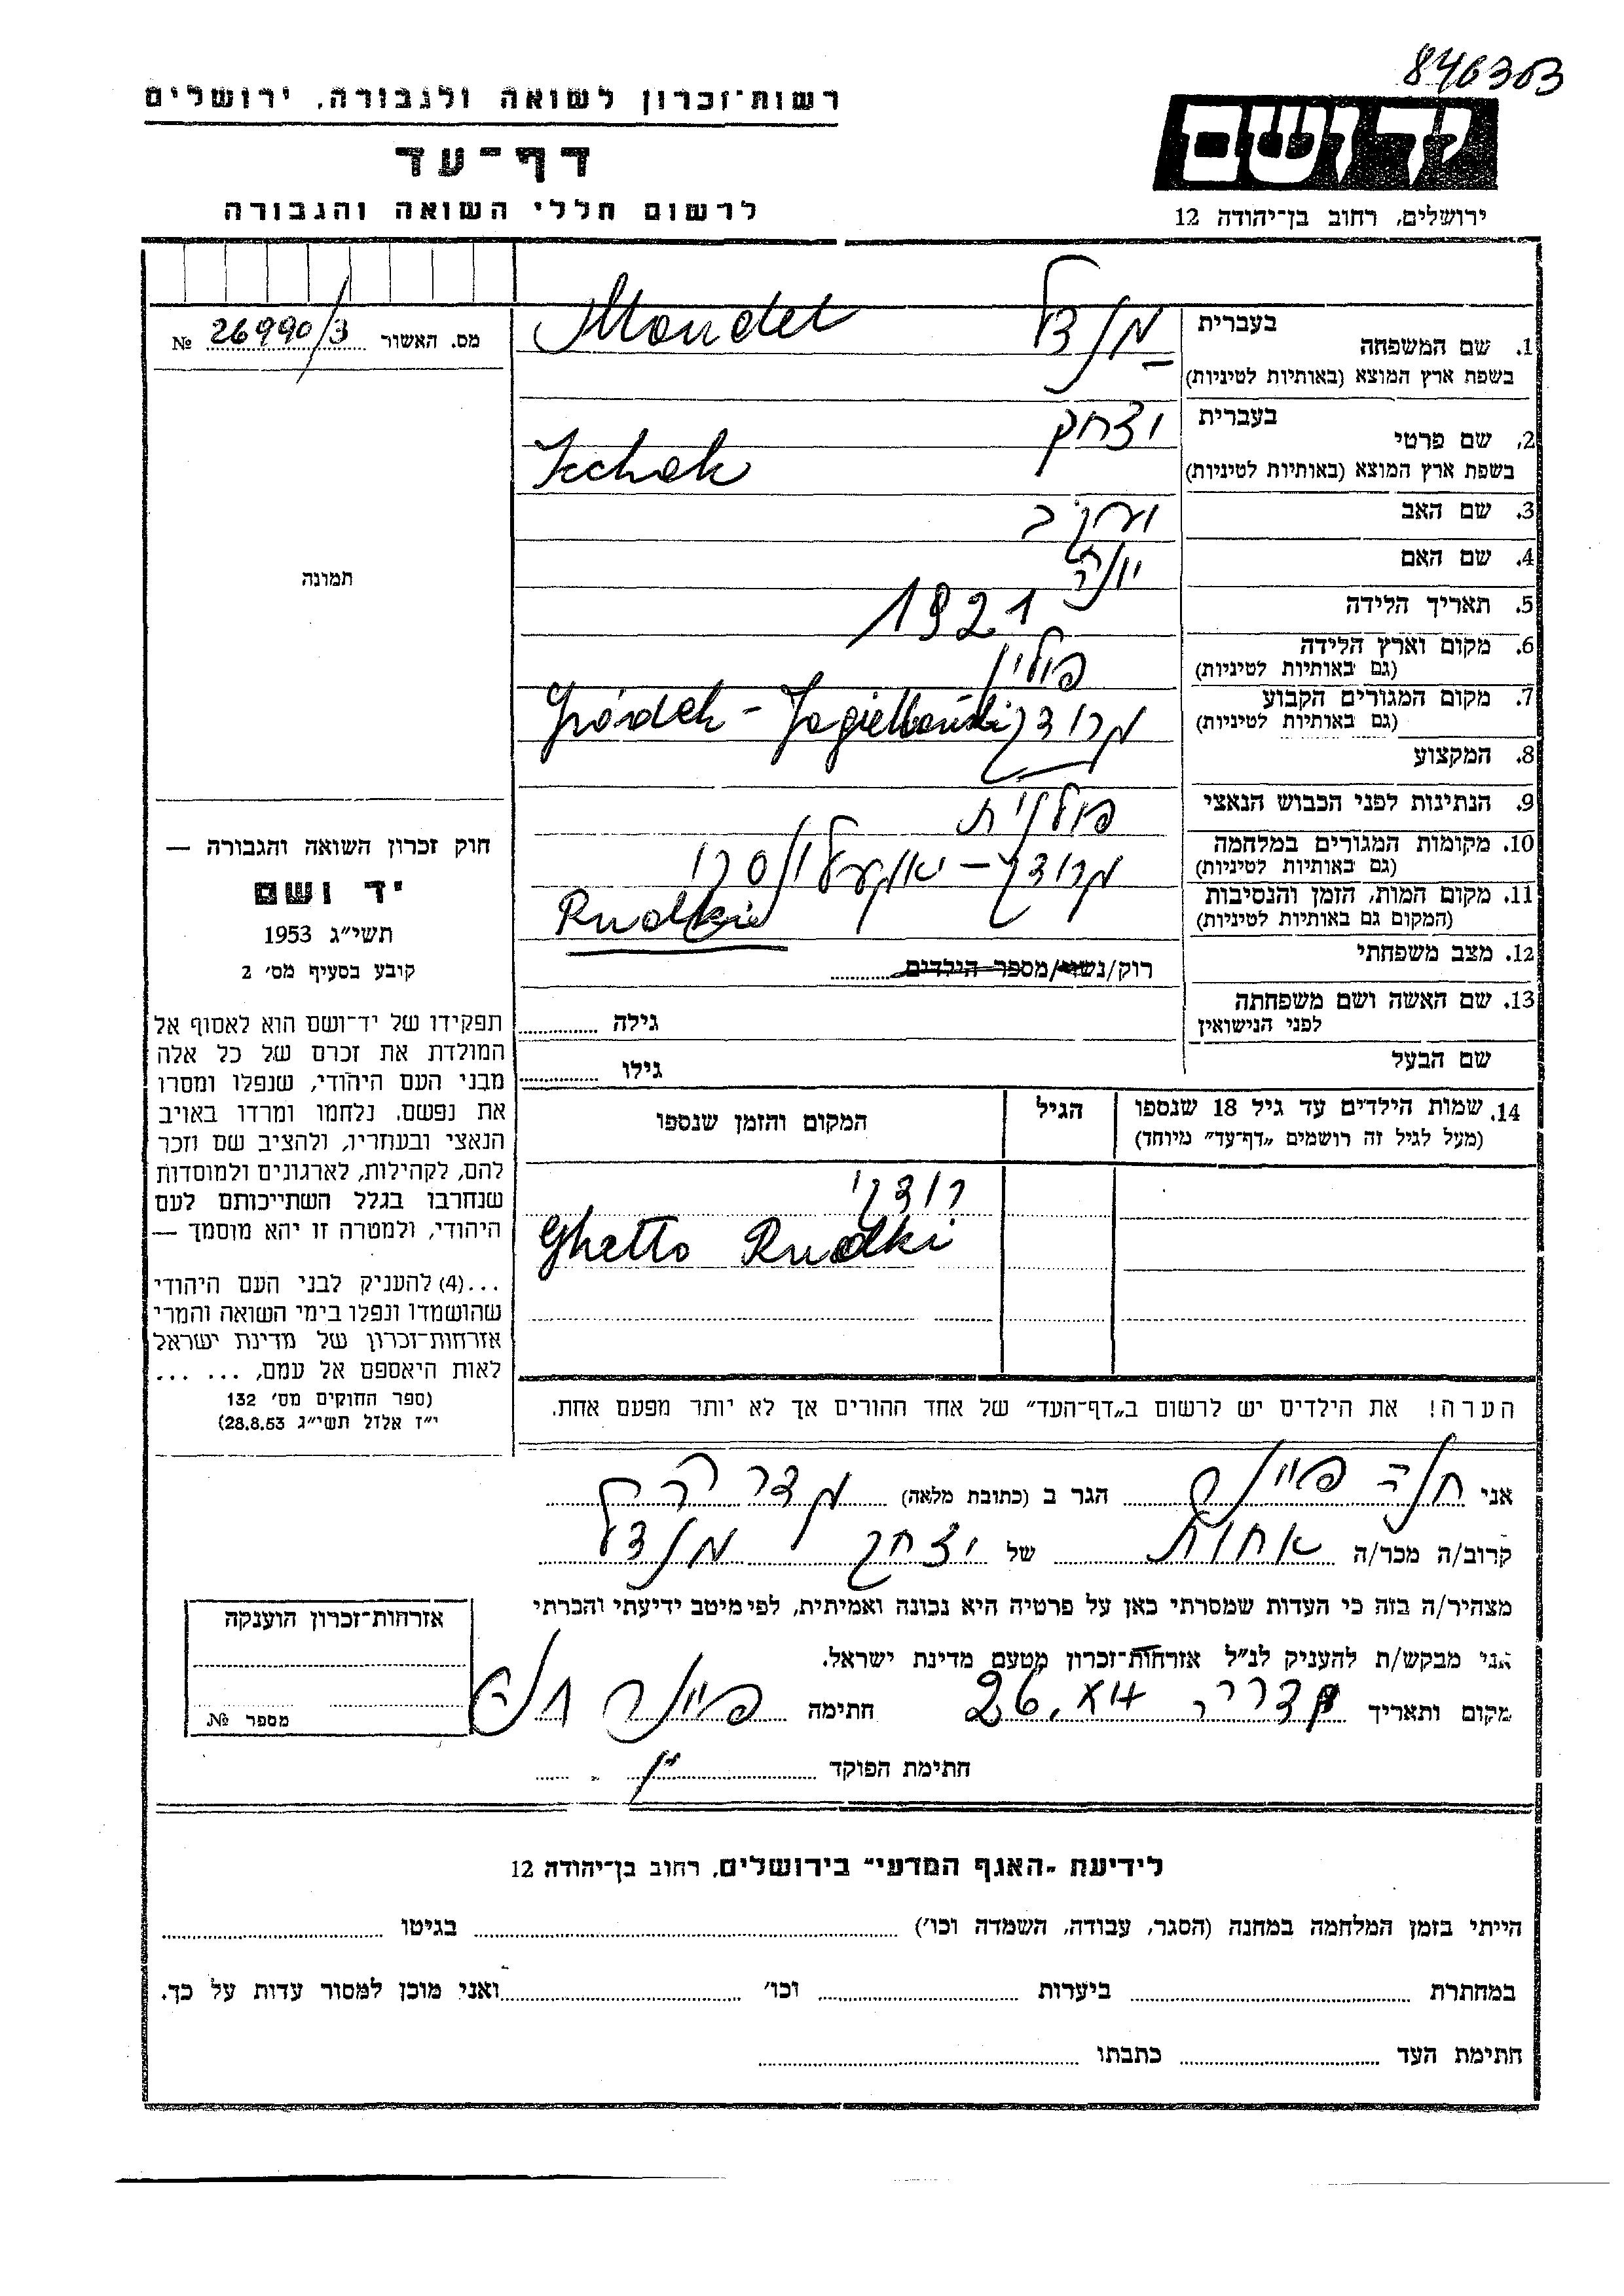 846303
רשות־זכרון לשואה ולגבורה, ירושלים
יד ושם
דף־עד
לרשום חללי השואה והגבורה
ירושלים, רחוב בן־יהודה 12
מס. האשור 26990/3 №
בעברית
1. שם המשפחה
מנדל Mandel
בשפת ארץ המוצא (באותיות לטיניות)
בעברית
2. שם פרטי
יצחק Icchak
בשפת ארץ המוצא (באותיות לטיניות)
3. שם האב יעקב
4. שם האם יונה
5. תאריך הלידה 1921
6. מקום וארץ הלידה פולין
(גם באותיות לטיניות)
7. מקום המגורים הקבוע Gródek - Jagielloński
(גם באותיות לטיניות)
8. המקצוע
9. הנתינות לפני הכבוש הנאצי פולנית
10. מקומות המגורים במלחמה
(גם באותיות לטיניות)
11. מקום המות, הזמן והנסיבות Rudkie
(המקום גם באותיות לטיניות)
12. מצב משפחתי רוק/נשוי/מספר הילדים
13. שם האשה ושם משפחתה גילה
לפני הנישואין
שם הבעל גילו
14. שמות הילדים עד גיל 18 שנספו הגיל המקום והזמן שנספו
(מעל לגיל זה רושמים „דף־עד” מיוחד)
רודקי
Ghetto Rudki
הערה! את הילדים יש לרשום ב„דף־העד” של אחד ההורים אך לא יותר מפעם אחת.
תמונה
חוק זכרון השואה והגבורה —
יד ושם
תשי״ג 1953
קובע בסעיף מס׳ 2
תפקידו של יד־ושם הוא לאסוף אל
המולדת את זכרם של כל אלה
מבני העם היהודי, שנפלו ומסרו
את נפשם, נלחמו ומרדו באויב
הנאצי ובעוזריו, ולהציב שם וזכר
להם, לקהילות, לארגונים ולמוסדות
שנחרבו בגלל השתייכותם לעם
היהודי, ולמטרה זו יהא מוסמך —
...(4) להעניק לבני העם היהודי
שהושמדו ונפלו בימי השואה והמרי
אזרחות־זכרון של מדינת ישראל
לאות היאספם אל עמם, ... ...
(ספר החוקים מס׳ 132
י״ז אלול תשי״ג 28.8.53)
אני חנה הגר ב (כתובת מלאה)
קרוב/ה מכר/ה אחות של יצחק מנדל
מצהיר/ה בזה כי העדות שמסרתי כאן על פרטיה היא נכונה ואמיתית, לפי מיטב ידיעתי והכרתי
אני מבקש/ת להעניק לנ״ל אזרחות־זכרון מטעם מדינת ישראל.
מקום ותאריך 26. XII חתימה חנה
חתימת הפוקד
אזרחות־זכרון הוענקה
מספר №
לידיעת „האגף המדעי” בירושלים, רחוב בן־יהודה 12
הייתי בזמן המלחמה במחנה (הסגר, עבודה, השמדה וכו׳) בגיטו
במחתרת ביערות וכו׳ ואני מוכן למסור עדות על כך.
חתימת העד כתבתו